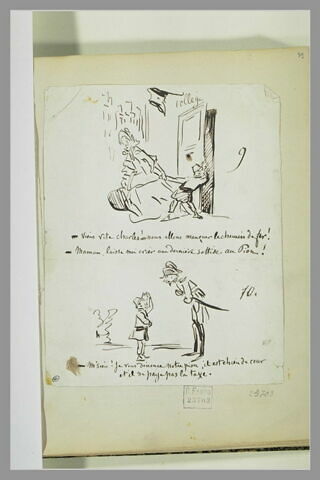 39
college
9
— Viens vite charles! nous allons manquer le chemin de fer!
— Maman laisse moi crier une dernière sottise au Pion!
10.
— M'sieu! je vous dénonce notre pion, il est chien de cour
et il ne paye pas la taxe.
23703